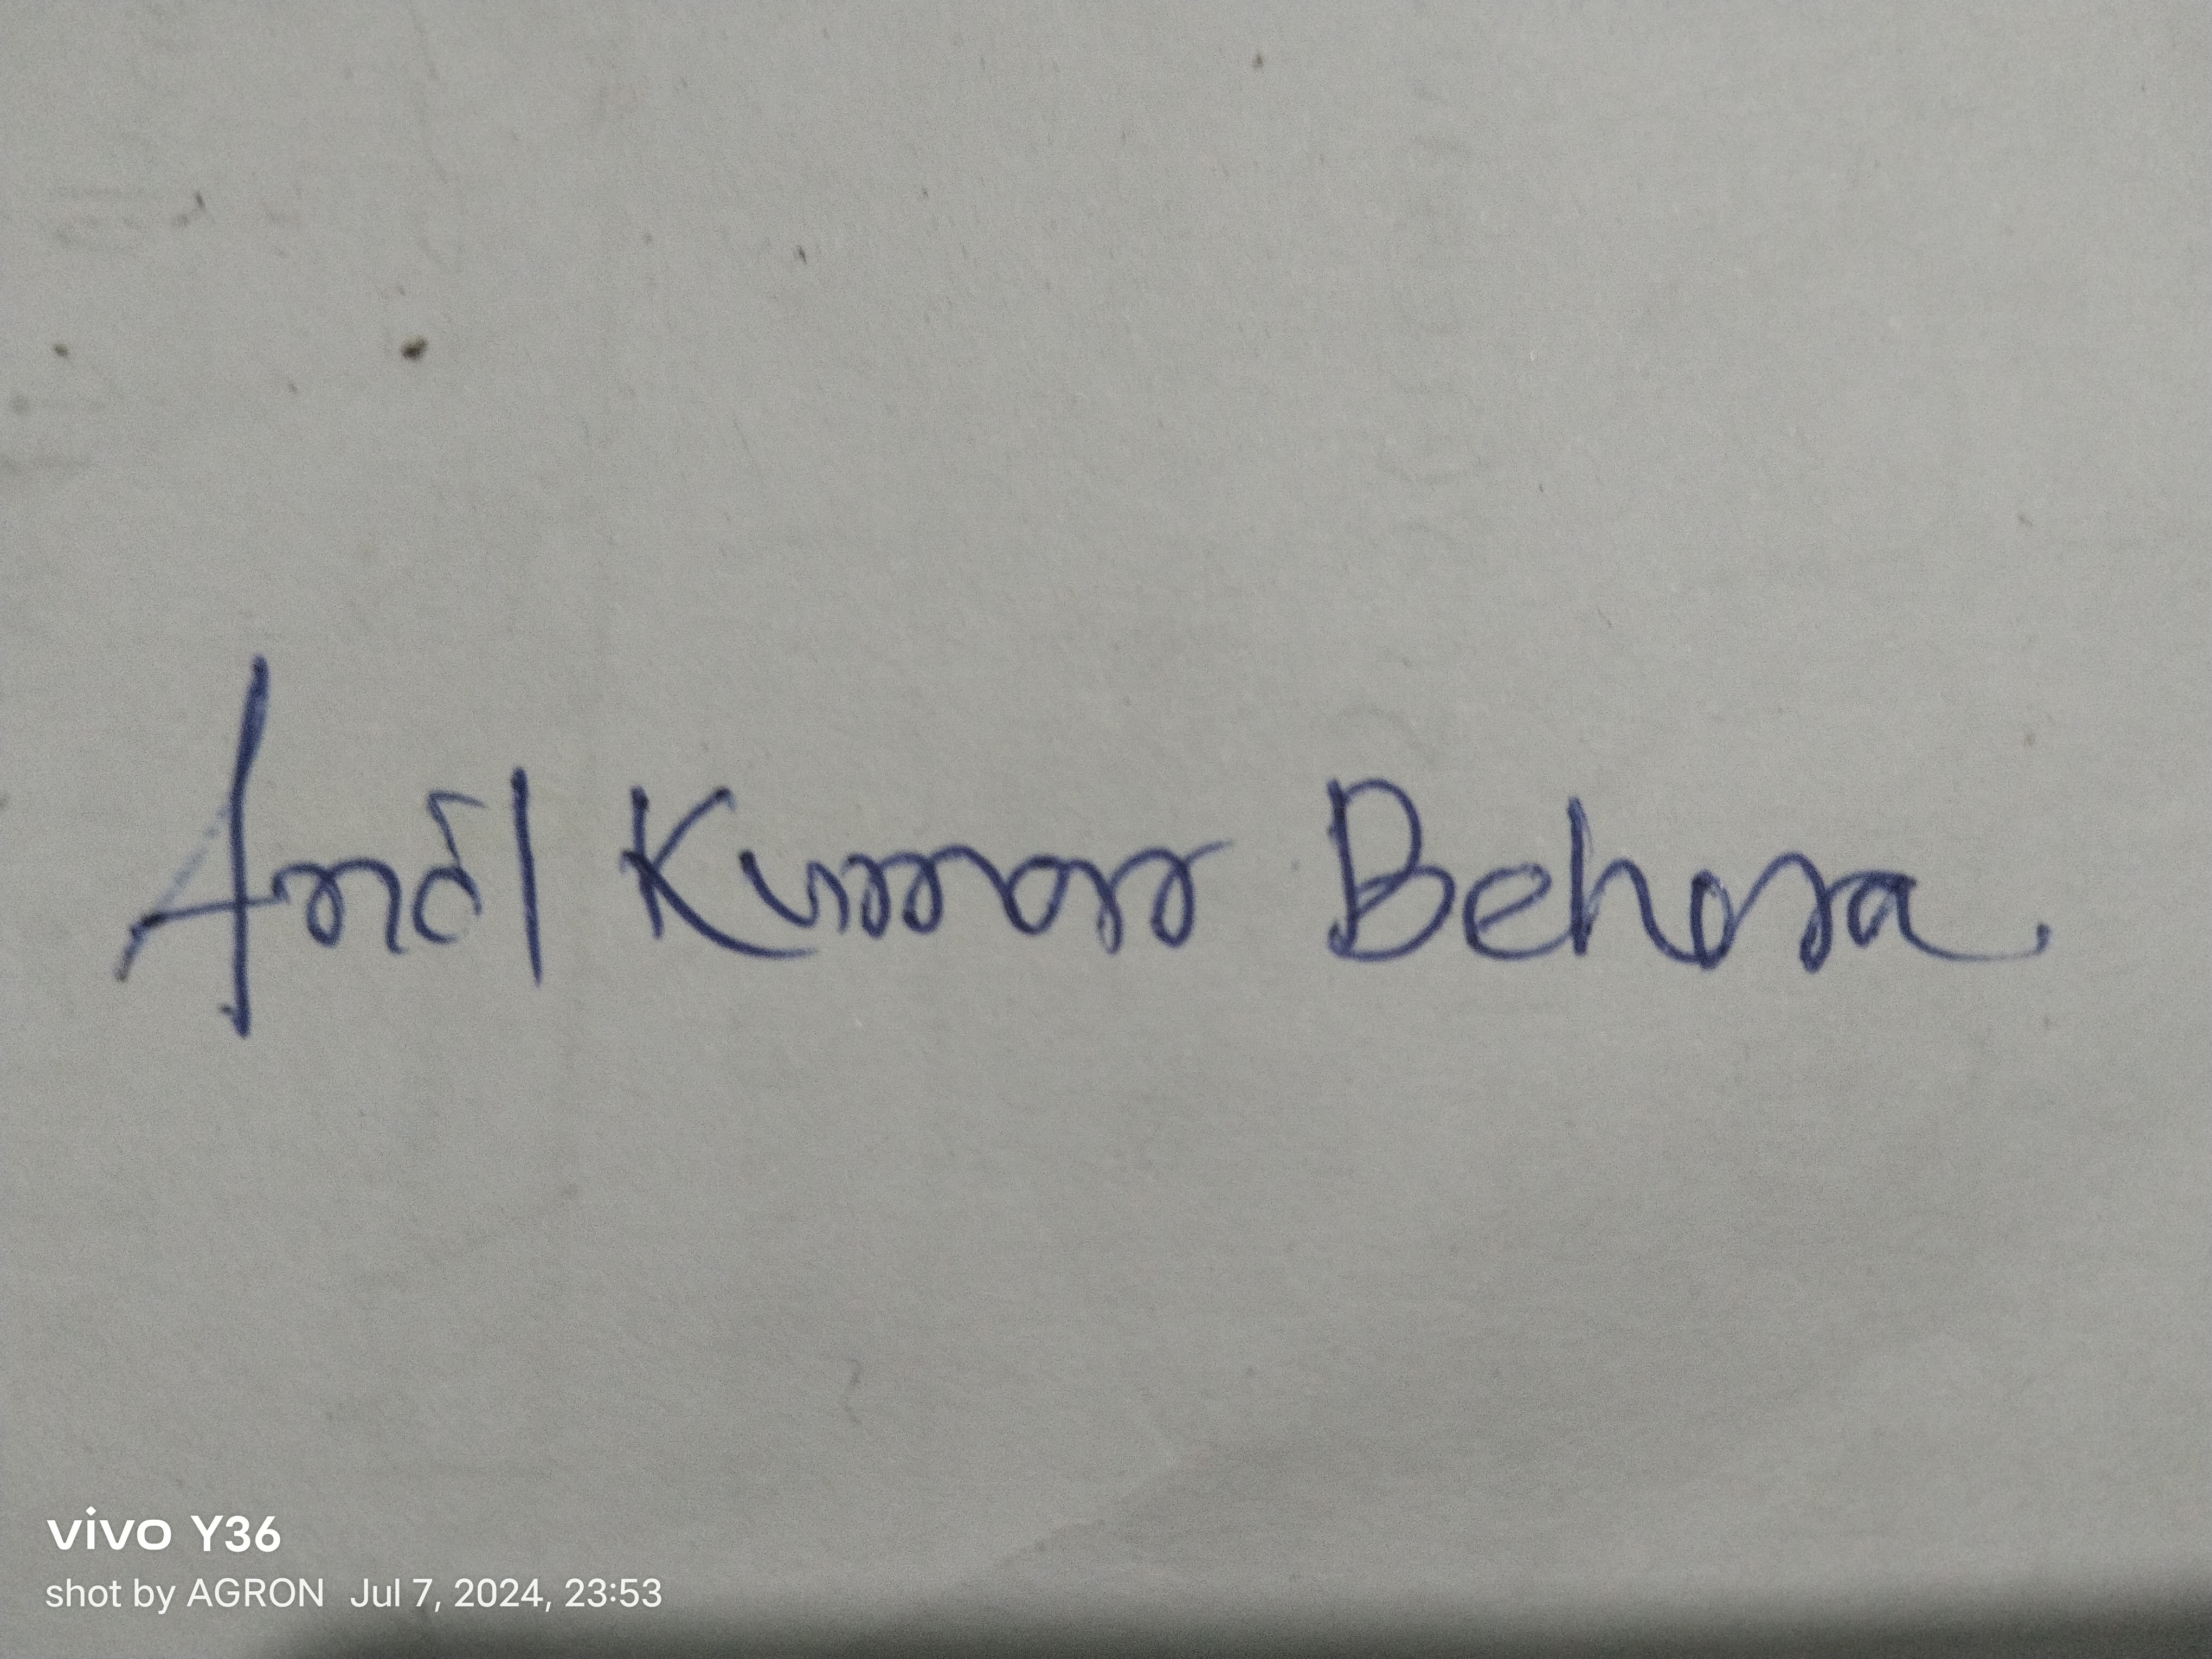 Anil Kumar Behera
vivo Y36
shot by AGRON Jul 7, 2024, 23:53